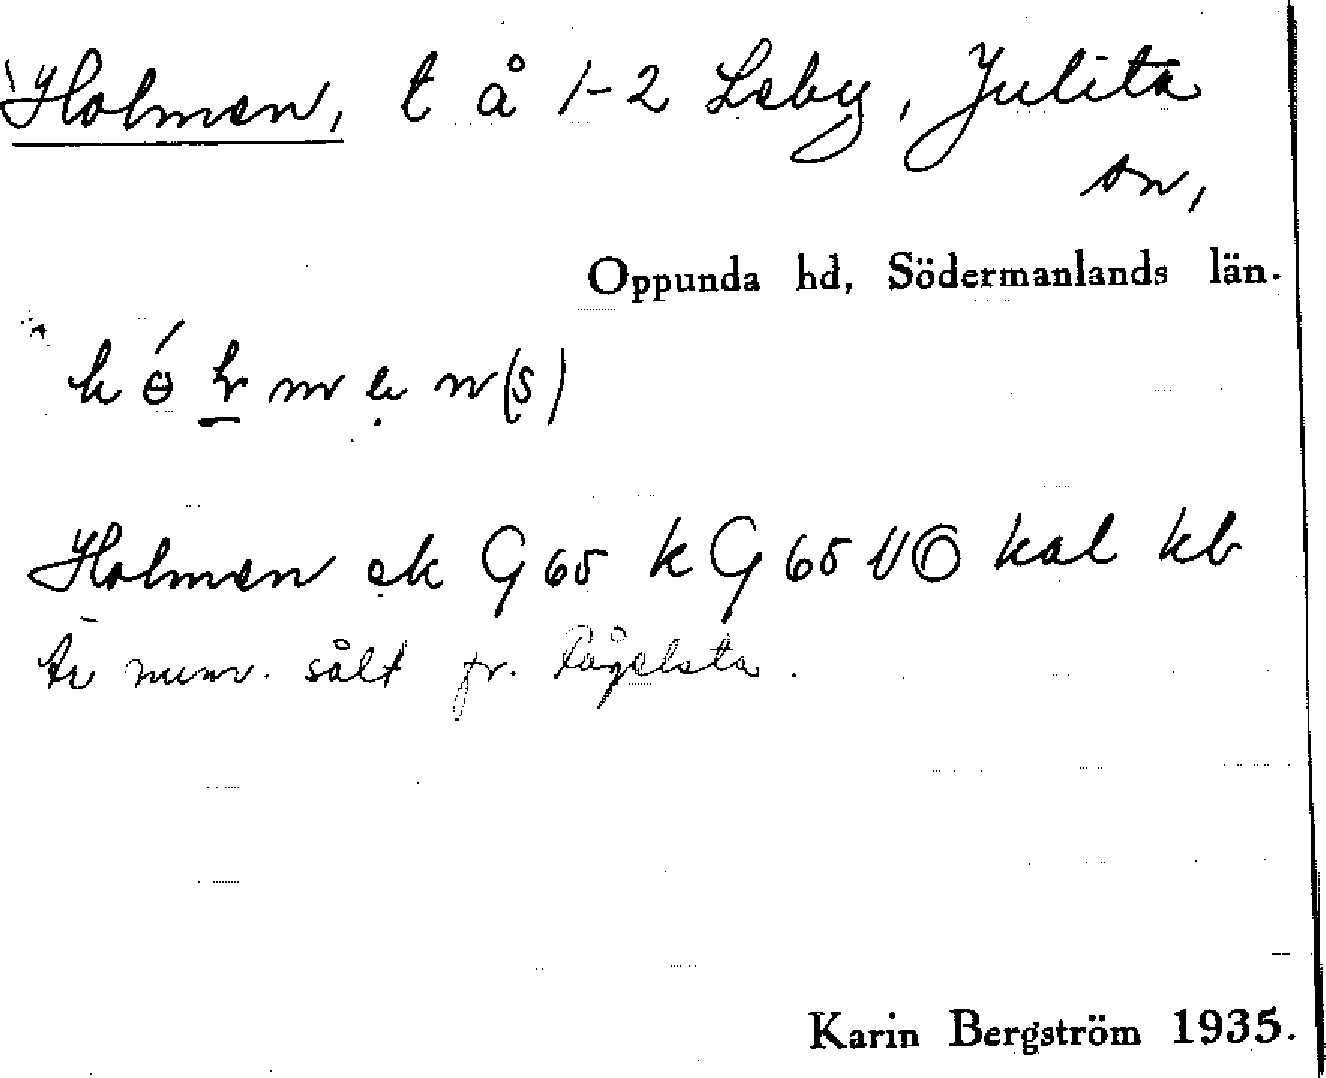 Holmen, t å 1-2 Leby, Julita
sn,
Oppunda hd, Södermanlands län.
Holmen ek G 65 k G 65 kal kb
Är numr. sålt fr. Fågelsta.
Karin Bergström 1935.